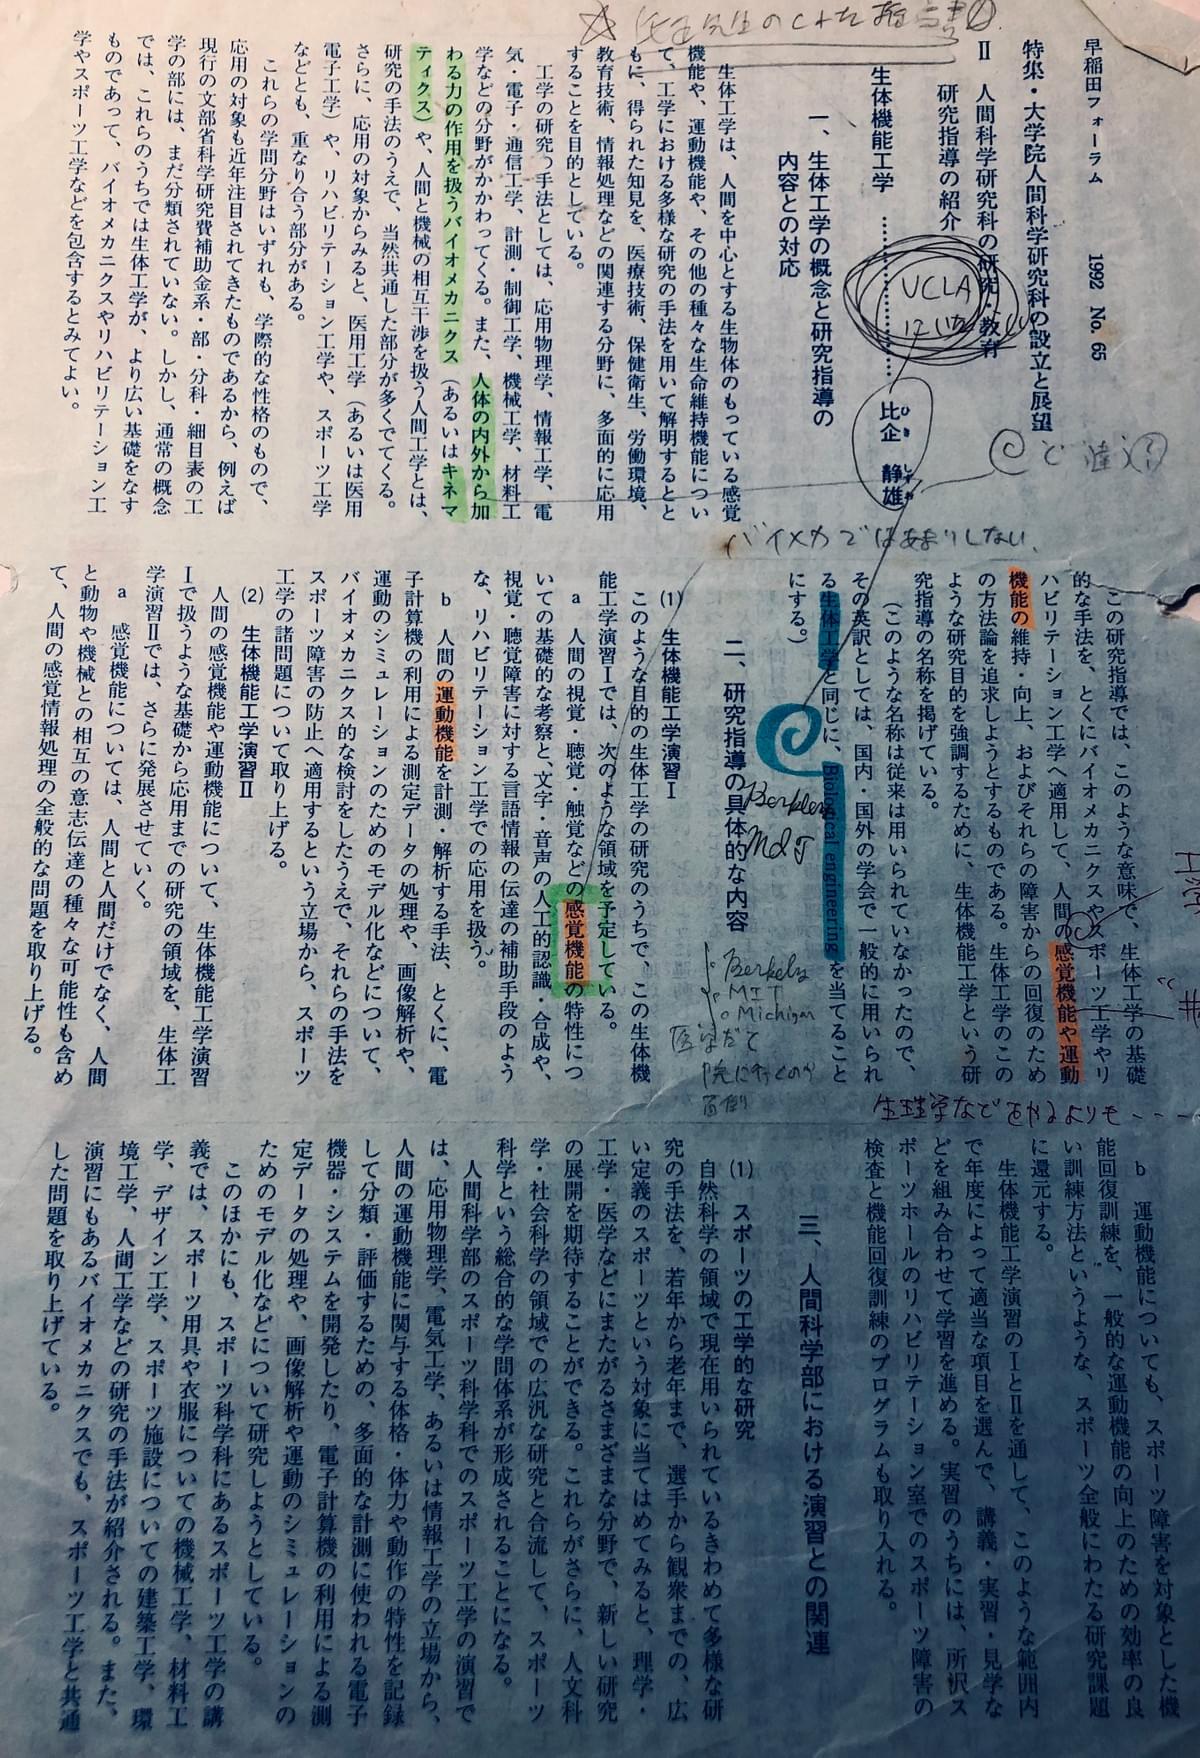 早稲田フォーラム　1992　No. 65
特集・大学院人間科学研究科の設立と展望
Ⅱ　人間科学研究科の研究・教育
研究指導の紹介
生体機能工学……………比企　静雄
ひき　しずお
一、生体工学の概念と研究指導の
内容との対応
生体工学は、人間を中心とする生物体のもっている感覚
機能や、運動機能や、その他の種々な生命維持機能につい
て、工学における多様な研究の手法を用いて解明するとと
もに、得られた知見を、医療技術、保健衛生、労働環境、
教育技術、情報処理などの関連する分野に、多面的に応用
することを目的としている。
工学の研究の手法としては、応用物理学、情報工学、電
気・電子・通信工学、計測・制御工学、機械工学、材料工
学などの分野がかかわってくる。また、人体の内外から加
わる力の作用を扱うバイオメカニクス（あるいはキネマ
ティクス）や、人間と機械の相互干渉を扱う人間工学とは、
研究の手法のうえで、当然共通した部分が多くでてくる。
さらに、応用の対象からみると、医用工学（あるいは医用
電子工学）や、リハビリテーション工学や、スポーツ工学
などとも、重なり合う部分がある。
これらの学問分野はいずれも、学際的な性格のもので、
応用の対象も近年注目されてきたものであるから、例えば
現行の文部省科学研究費補助金系・部・分科・細目表の工
学の部には、まだ分類されていない。しかし、通常の概念
では、これらのうちでは生体工学が、より広い基礎をなす
ものであって、バイオメカニクスやリハビリテーション工
学やスポーツ工学などを包含するとみてよい。
UCLA
にいた
と違う？
バイメカではあまりしない、
この研究指導では、このような意味で、生体工学の基礎
的な手法を、とくにバイオメカニクスやスポーツ工学やリ
ハビリテーション工学へ適用して、人間の感覚機能や運動
機能の維持・向上、およびそれらの障害からの回復のため
の方法論を追求しようとするものである。生体工学のこの
ような研究目的を強調するために、生体機能工学という研
究指導の名称を掲げている。
（このような名称は従来は用いられていなかったので、
その英訳としては、国内・国外の学会で一般的に用いられ
る生体工学と同じに、Biological engineering を当てること
にする。）
二、研究指導の具体的な内容
(1)　生体機能工学演習Ⅰ
このような目的の生体工学の研究のうちで、この生体機
能工学演習Ⅰでは、次のような領域を予定している。
a　人間の視覚・聴覚・触覚などの感覚機能の特性につ
いての基礎的な考察と、文字・音声の人工的認識・合成や、
視覚・聴覚障害に対する言語情報の伝達の補助手段のよう
な、リハビリテーション工学での応用を扱う。
b　人間の運動機能を計測・解析する手法、とくに、電
子計算機の利用による測定データの処理や、画像解析や、
運動のシミュレーションのためのモデル化などについて、
バイオメカニクス的な検討をしたうえで、それらの手法を
スポーツ障害の防止へ適用するという立場から、スポーツ
工学の諸問題について取り上げる。
(2)　生体機能工学演習Ⅱ
人間の感覚機能や運動機能について、生体機能工学演習
Ⅰで扱うような基礎から応用までの研究の領域を、生体工
学演習Ⅱでは、さらに発展させていく。
a　感覚機能については、人間と人間だけでなく、人間
と動物や機械との相互の意志伝達の種々な可能性も含め
て、人間の感覚情報処理の全般的な問題を取り上げる。
Berkeley
Berkely
MIT
Michigan
医学だと
院に行くのが
面倒
生理学などをやるよりも---
b　運動機能についても、スポーツ障害を対象とした機
能回復訓練を、一般的な運動機能の向上のための効率の良
い訓練方法というような、スポーツ全般にわたる研究課題
に還元する。
生体機能工学演習のⅠとⅡを通して、このような範囲内
で年度によって適当な項目を選んで、講義・実習・見学な
どを組み合わせて学習を進める。実習のうちには、所沢ス
ポーツホールのリハビリテーション室でのスポーツ障害の
検査と機能回復訓練のプログラムも取り入れる。
三、人間科学部における演習との関連
(1)　スポーツの工学的な研究
自然科学の領域で現在用いられているきわめて多様な研
究の手法を、若年から老年まで、選手から観衆までの、広
い定義のスポーツという対象に当てはめてみると、理学・
工学・医学などにまたがるさまざまな分野で、新しい研究
の展開を期待することができる。これらがさらに、人文科
学・社会科学の領域での広汎な研究と合流して、スポーツ
科学という総合的な学問体系が形成されることになる。
人間科学部のスポーツ科学科でのスポーツ工学の演習で
は、応用物理学、電気工学、あるいは情報工学の立場から、
人間の運動機能に関与する体格・体力や動作の特性を記録
して分類・評価するための、多面的な計測に使われる電子
機器・システムを開発したり、電子計算機の利用による測
定データの処理や、画像解析や運動のシミュレーションの
ためのモデル化などについて研究しようとしている。
このほかにも、スポーツ科学科にあるスポーツ工学の講
義では、スポーツ用具や衣服についての機械工学、材料工
学、デザイン工学、スポーツ施設についての建築工学、環
境工学、人間工学などの研究の手法が紹介される。また、
演習にもあるバイオメカニクスでも、スポーツ工学と共通
した問題を取り上げている。